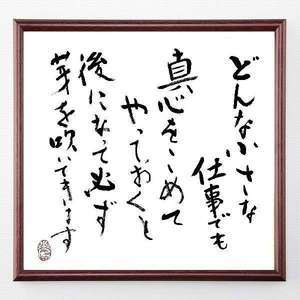 どんな小さな
仕事でも
真心をこめて
やっておくと
後になって必ず
芽を吹いてきます